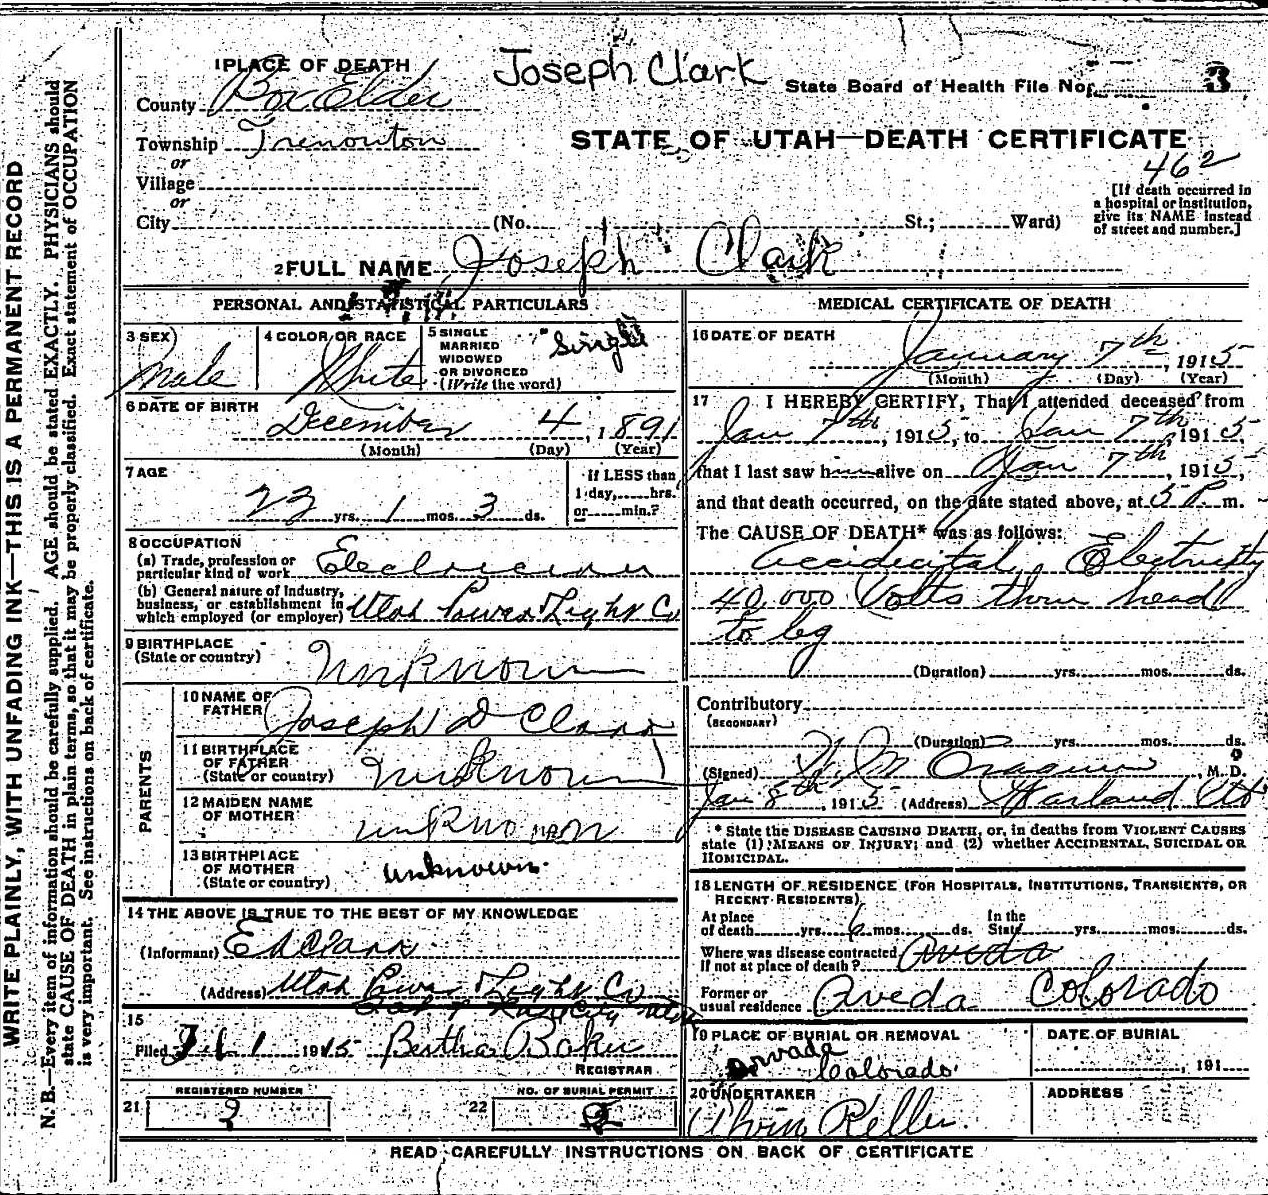 WRITE PLAINLY, WITH UNFADING INK—THIS IS A PERMANENT RECORD
N. B.—Every item of information should be carefully supplied. AGE should be stated EXACTLY. PHYSICIANS should
state CAUSE OF DEATH in plain terms, so that it may be properly classified. Exact statement of OCCUPATION
is very important. See instructions on back of certificate.
Joseph Clark
State Board of Health File No. 3
STATE OF UTAH—DEATH CERTIFICATE
462
1 PLACE OF DEATH
County Box Elder
Township Tremonton
or
Village
or
City (No. St.; Ward)
[If death occurred in
a hospital or institution,
give its NAME instead
of street and number.]
2 FULL NAME Joseph Clark
PERSONAL AND STATISTICAL PARTICULARS
3 SEX
Male
4 COLOR OR RACE
White
5 SINGLE
MARRIED
WIDOWED
OR DIVORCED
(Write the word)
Single
6 DATE OF BIRTH
December 4, 1891
(Month) (Day) (Year)
7 AGE
23 yrs. 1 mos. 3 ds.
If LESS than
1 day, hrs.
or min.?
8 OCCUPATION
(a) Trade, profession or
particular kind of work Electrician
(b) General nature of industry,
business, or establishment in
which employed (or employer) Utah Power & Light Co
9 BIRTHPLACE
(State or country)
Unknown
PARENTS
10 NAME OF
FATHER
Joseph D Clark
11 BIRTHPLACE
OF FATHER
(State or country)
Unknown
12 MAIDEN NAME
OF MOTHER
unknown
13 BIRTHPLACE
OF MOTHER
(State or country)
unknown
14 THE ABOVE IS TRUE TO THE BEST OF MY KNOWLEDGE
(Informant) Ed Clark
(Address) Utah Power & Light Co
15
Filed Feb 1 1915 Bertha Baker
REGISTRAR
REGISTERED NUMBER
21 2
NO. OF BURIAL PERMIT
22 2
MEDICAL CERTIFICATE OF DEATH
16 DATE OF DEATH
January 7th, 1915
(Month) (Day) (Year)
17 I HEREBY CERTIFY, That I attended deceased from
Jan 7th, 1915, to Jan 7th, 1915,
that I last saw h alive on Jan 7th, 1915,
and that death occurred, on the date stated above, at 5 P m.
The CAUSE OF DEATH* was as follows:
Accidental, Electricity
40,000 Volts thru head
to leg
(Duration) yrs. mos. ds.
Contributory
(SECONDARY)
(Duration) yrs. mos. ds.
(Signed) M. D.
Jan 8th, 1915 (Address) Garland
* State the DISEASE CAUSING DEATH, or, in deaths from VIOLENT CAUSES
state (1) MEANS OF INJURY; and (2) whether ACCIDENTAL, SUICIDAL OR
HOMICIDAL.
18 LENGTH OF RESIDENCE (FOR HOSPITALS, INSTITUTIONS, TRANSIENTS, OR
RECENT RESIDENTS).
At place
of death yrs. 6 mos. ds.
In the
State yrs. mos. ds.
Where was disease contracted
If not at place of death? Aveda
Former or
usual residence Aveda Colorado
19 PLACE OF BURIAL OR REMOVAL
Arvada
Colorado
DATE OF BURIAL
, 191
20 UNDERTAKER
Alvin Keller
ADDRESS
READ CAREFULLY INSTRUCTIONS ON BACK OF CERTIFICATE